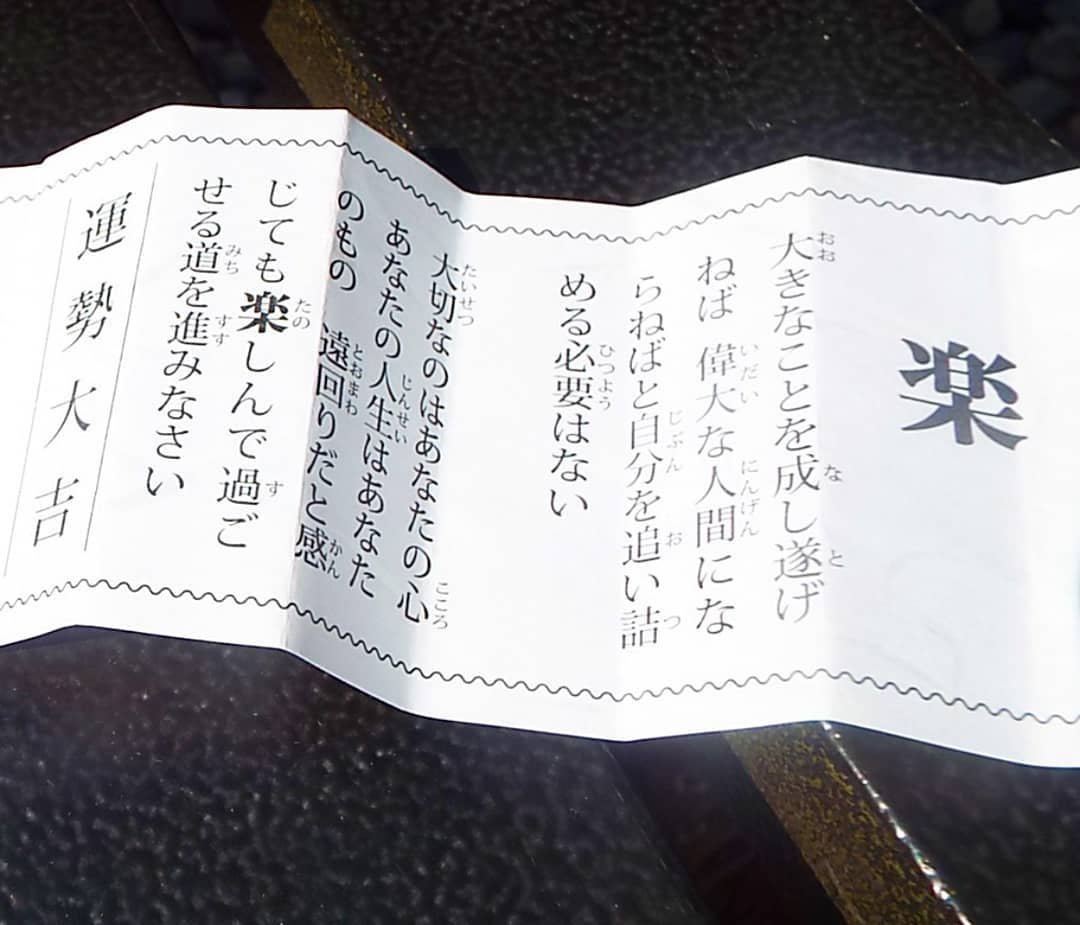 楽
大きなことを成し遂げ
ねば 偉大な人間にな
らねばと自分を追い詰
める必要はない
大切なのはあなたの心
あなたの人生はあなた
のもの 遠回りだと感
じても楽しんで過ご
せる道を進みなさい
運勢大吉